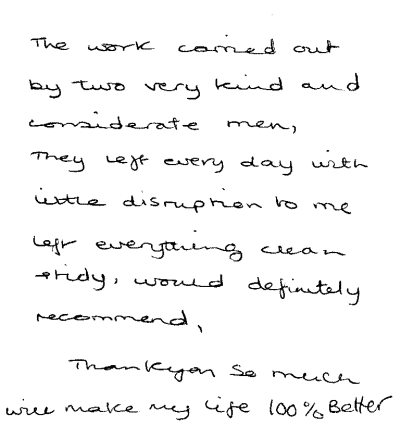 The work carried out
by two very kind and
considerate men,
They left every day with
little disruption to me
left everything clean
+tidy, would definitely
recommend,
Thankyou so much
will make my life 100% Better